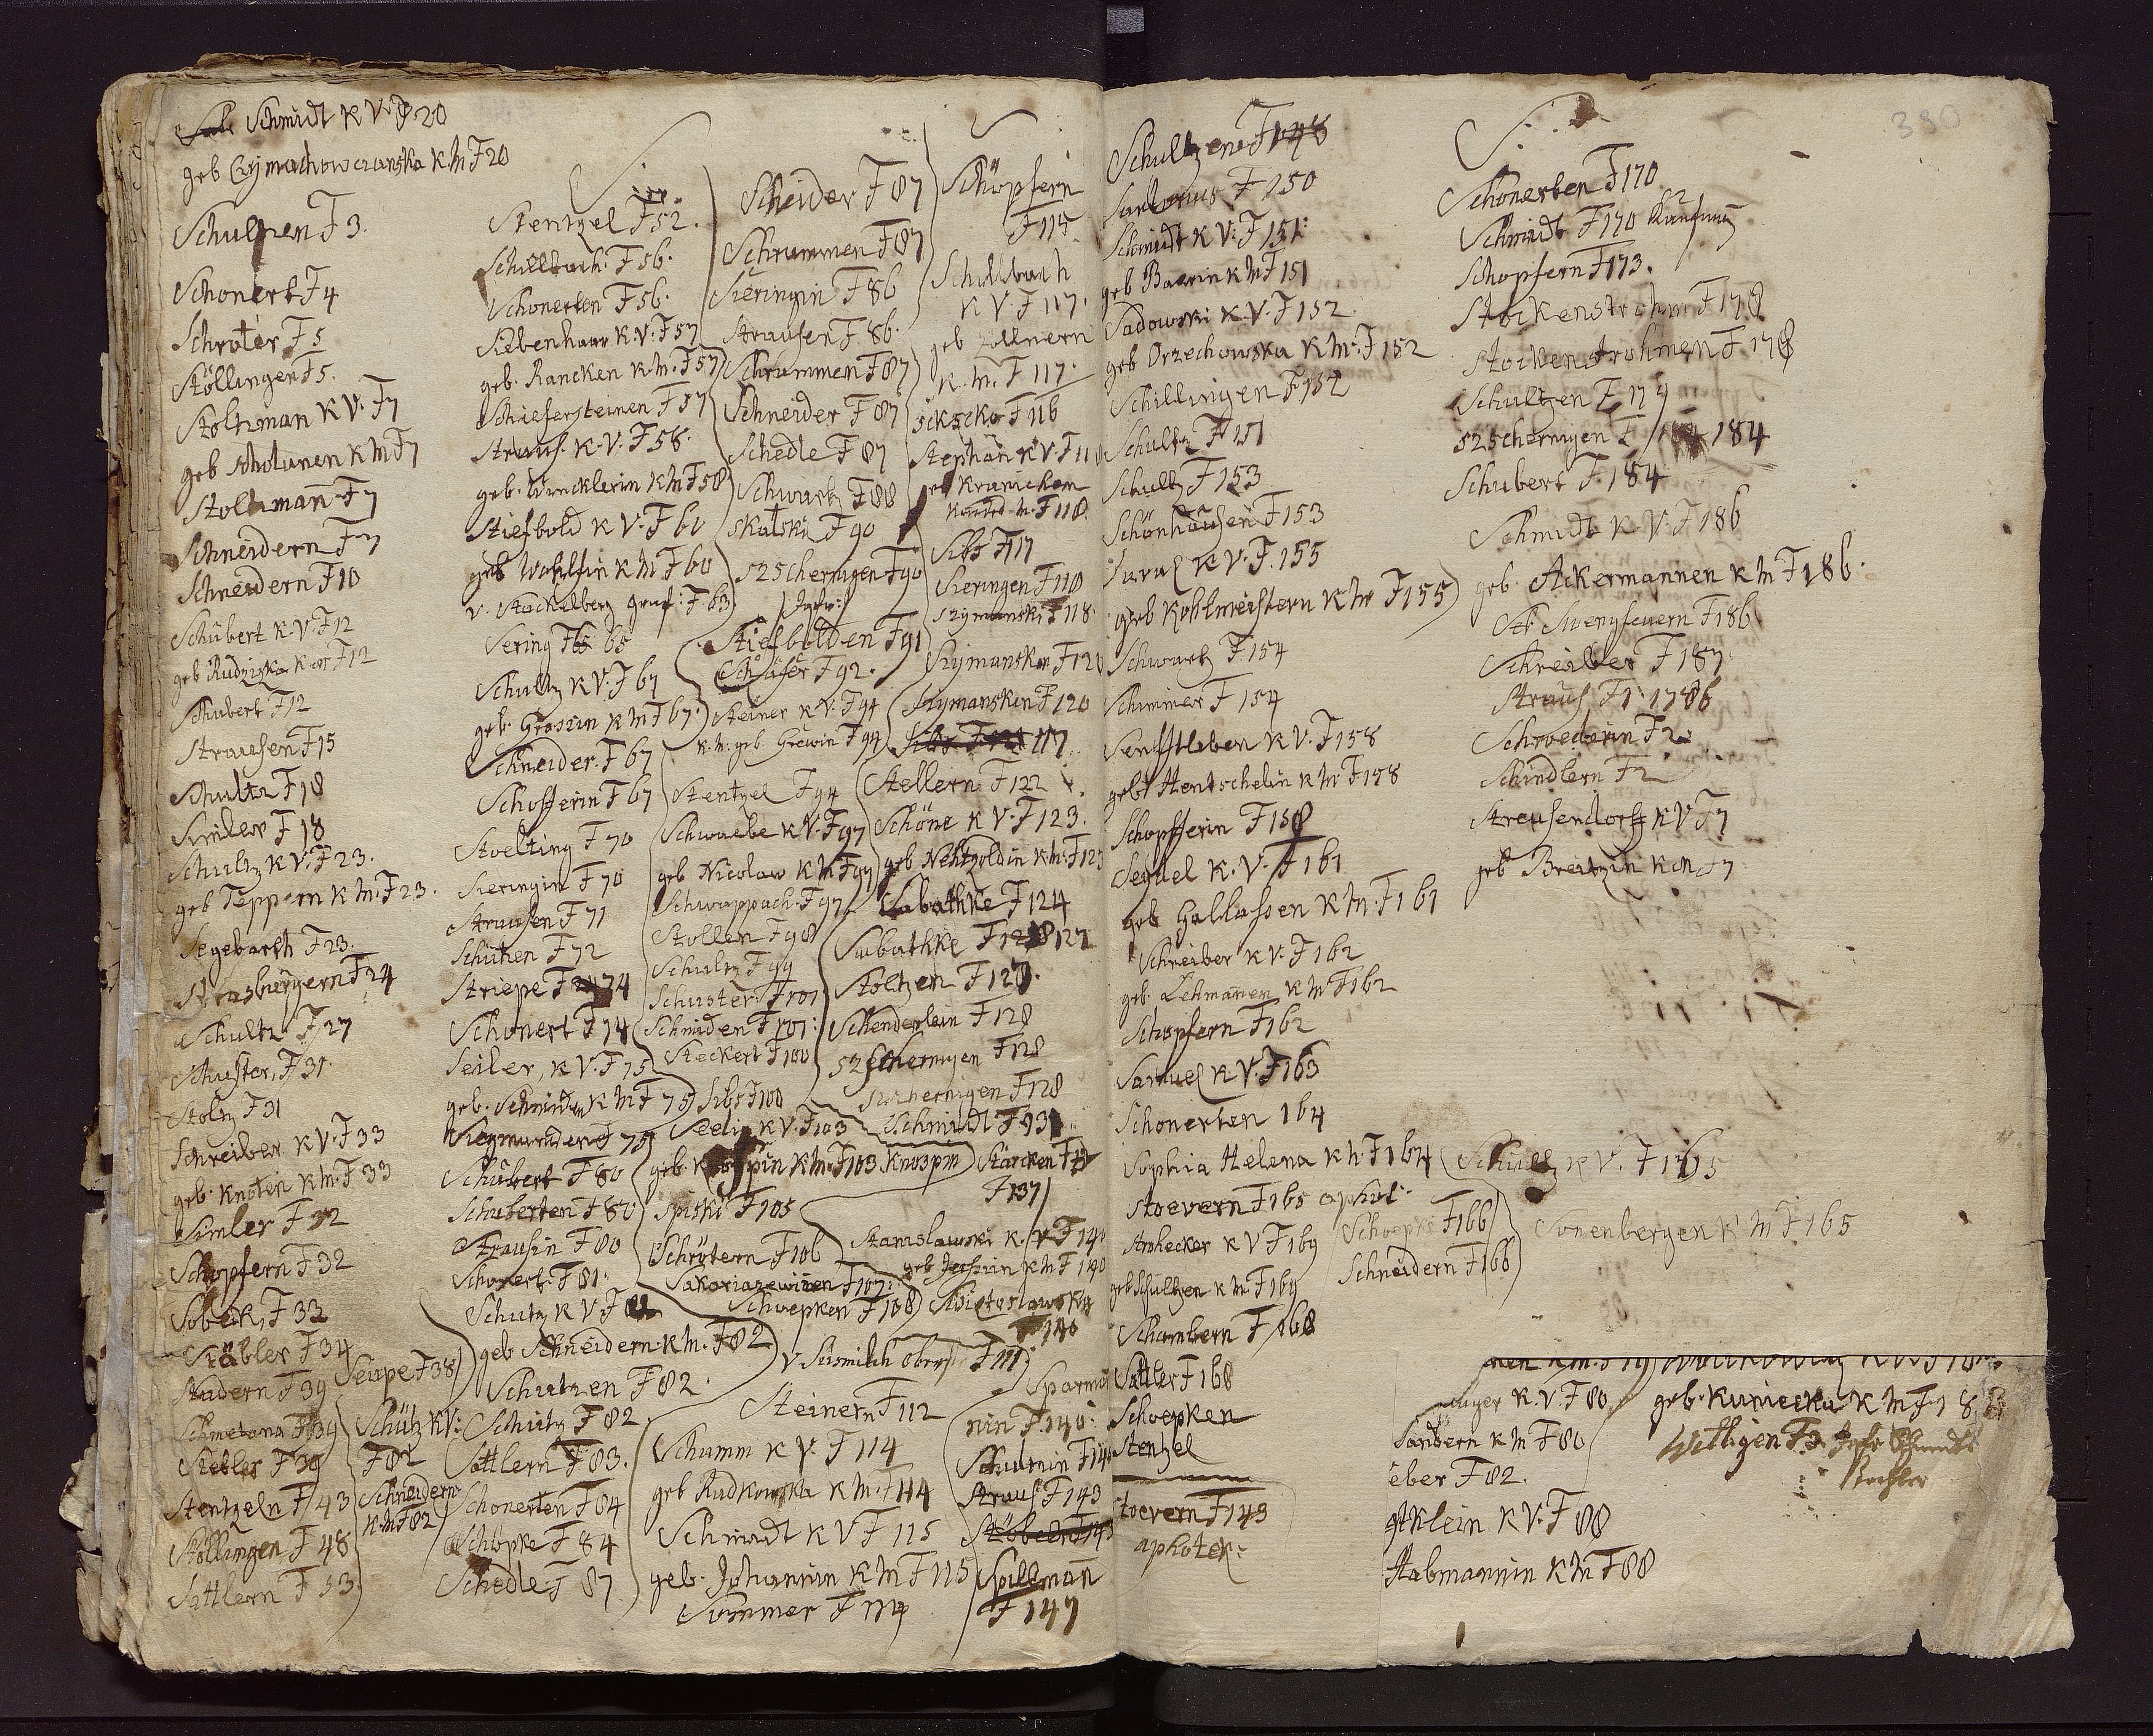 Schmidt K V F 20
geb Czymachowczanska K M F 20
Schultzen F 3.
Schonert F 4
Schroter F 5
Stöllingen F 5.
Stoltzman K V. F 7
geb K M F 7
Stoltzman F 7
Schneidern F 7
Schneidern F 10
Schubert K V F 12
geb Rudzizka K M F 12
Schubert F 12
Strausen F 15
Schultz F 18
F 18
Schultz K V. F 23.
geb Teppern K M. F 23.
Segebarth F 23.
Strasburgern F 24
Schultz F 27
Schuster, F 31.
Stoltz F 31
Schreiber K V. F 33
geb. Knoten K M. F 33
Simler F 32
Schopfern F 32
Sobeck, F 33
Stäbler F 34
Seupe F 38
Studern F 39
Schmetana F 39
Siebler F 39
Stentzeln F 43
Stöllingen F 48
Sattlern F 53.
Schütz K V:
F 82
Schneidern
K M F 82
S.
Stentzel F 52.
Schillbach. F 56.
Schonerten F 56.
Siebenhaar K. V. F 57
geb. Rancken K. M. F 57
Schiefersteinen F 57
Straus. K. V. F 58.
geb. Wincklerin K M F 58
Stiefbold K V. F 60
geb Wohlfin K M F 60
v. Stackelberg graf: F 63
Sering F 65
Schultz K V. F 67
geb. Grossin K M F 67.
Schneider. F 67
Schofferin F 67
Stoelting F 70
Sieringin F 70
Strausen F 71
Schützen F 72
Striepe F 74
Schonert F 74
Seiler, K V. F 75
geb. Schmiden K M F 75
Siegmunden F 75
Schubert F 80
Schuberten F 80
Strausin F 80
Schonert. F 81.
Schutz K V. F 82
geb Schneidern K M. F 82
Schutzen F 82.
Schutz F 82
Sattlern F 83.
Schonerten F 84
Schöpke F 84
Schedle F 87
Scheider F 87
Schrammen F 87
Sieringin F 86
Strausen F 86.
Schrammen F 87
Schneider F 87
Schedle F 87
Schwartz F 88
Skalski F 90
Szzschernigen F 90
Jgfr:
Stiefbolden F 91
Schäfer F 92.
Steiner K. V. F 94
K. M. geb. Grewin F 94
Stentzel F 94
Schwaebe K V. F 97
geb Nicolaw K M F 97
Schwappach. F 97
Stollen F 98
Schultz F 99
Schuster. F 101
Schmiden F 101:
Steckert F 100
Sibs F 100
Seelig K V. F 103
K M F 103 Knospin
Spiski F 105
Schrötern F 106
F 107:
Schoepken F 108
v Süsmilch F 111
Steinern F 112
Schumm K V. F 114
geb Rudkowska K M. F 114
Schmidt K V F 115
geb. Johannin K M F 115
Sommer F 114
Schöpfern
F 114
Schillbach
K V F 117.
geb Zollnern
K. M. F 117.
F 116
Stephan K V. F 118
K. M. F 118.
Sibs F 117
Sieringen F 118
Szymanski F 118.
Szymansken F 120
Szymansken F 120
117
Stellern F 122
Schöne K V. F 123.
geb Nehtzoldin K M. F 123
Sabathke F 124
Sabathke 127
Stoltzen F 128.
Schenderlein F 128
Szzschernigen F 128
F 128
Schmidt F 131
Starcken
F 137
Stanislawski K. V F 140
geb K M F 140
Swietoslawska
F 140
F 140.
Schultzin F 140
Straus F 143
Spillman
F 147
Schultzen F 148
Sartorius F 150
Schmidt K V. F 151.
geb Baerin K M F 151
Sadowski K. V. F 152
geb Orzechowska K M. F 152
Schillingen F 152
Schultz F 151
Schultz F 153
Schönhausen F 153
K V. F. 155
geb Kohlmeistern K M F 155
Schwartz F 154
F 154
Senfftleben K V. F 158
geb. Hentschelin K M. F 158
Schopfferin F 158
Seydel K. V. F 161
geb Gallassen K M. F 161
Schreiber K V. F 162
geb. Lehmanen K M F 162
Schopfern F 162
Samuel K V. F 163
Schonerten 164
Sophia Helena K M. F 164
Stoevern F 165
Strohecker K V F 169
geb Schultzen K M. F 169
F 168
Sattler F 168
Schoepken
Stentzel
Stoevern F 143
aphotek:
S.
Schonerten F 170
Schmidt F 170
Schopfern F 173.
Stockenstrohm F 178
Stockenstrohmen F. 178
Schultzen F 179
Szzschernigen F 184
Schubert F. 184
Schmidt K V. F 186
geb. Ackermannen K M F 186.
F 186
Schreiber F 187
Straus F 1 1786
Schroederin F 2
Schindlern F 2
Streusendorff K V F 7
geb Breitzin K M F 7
Schultz K V. F 165
Sonenbergen K M F. 165
Schoepke F 166
Schneidern F 166
K. V. F 80
Sandern K M F 80
eber F 82.
K V. F 88
Habmannin K M F 88
geb. Kuniecka K M F
Wettigen F 3
380